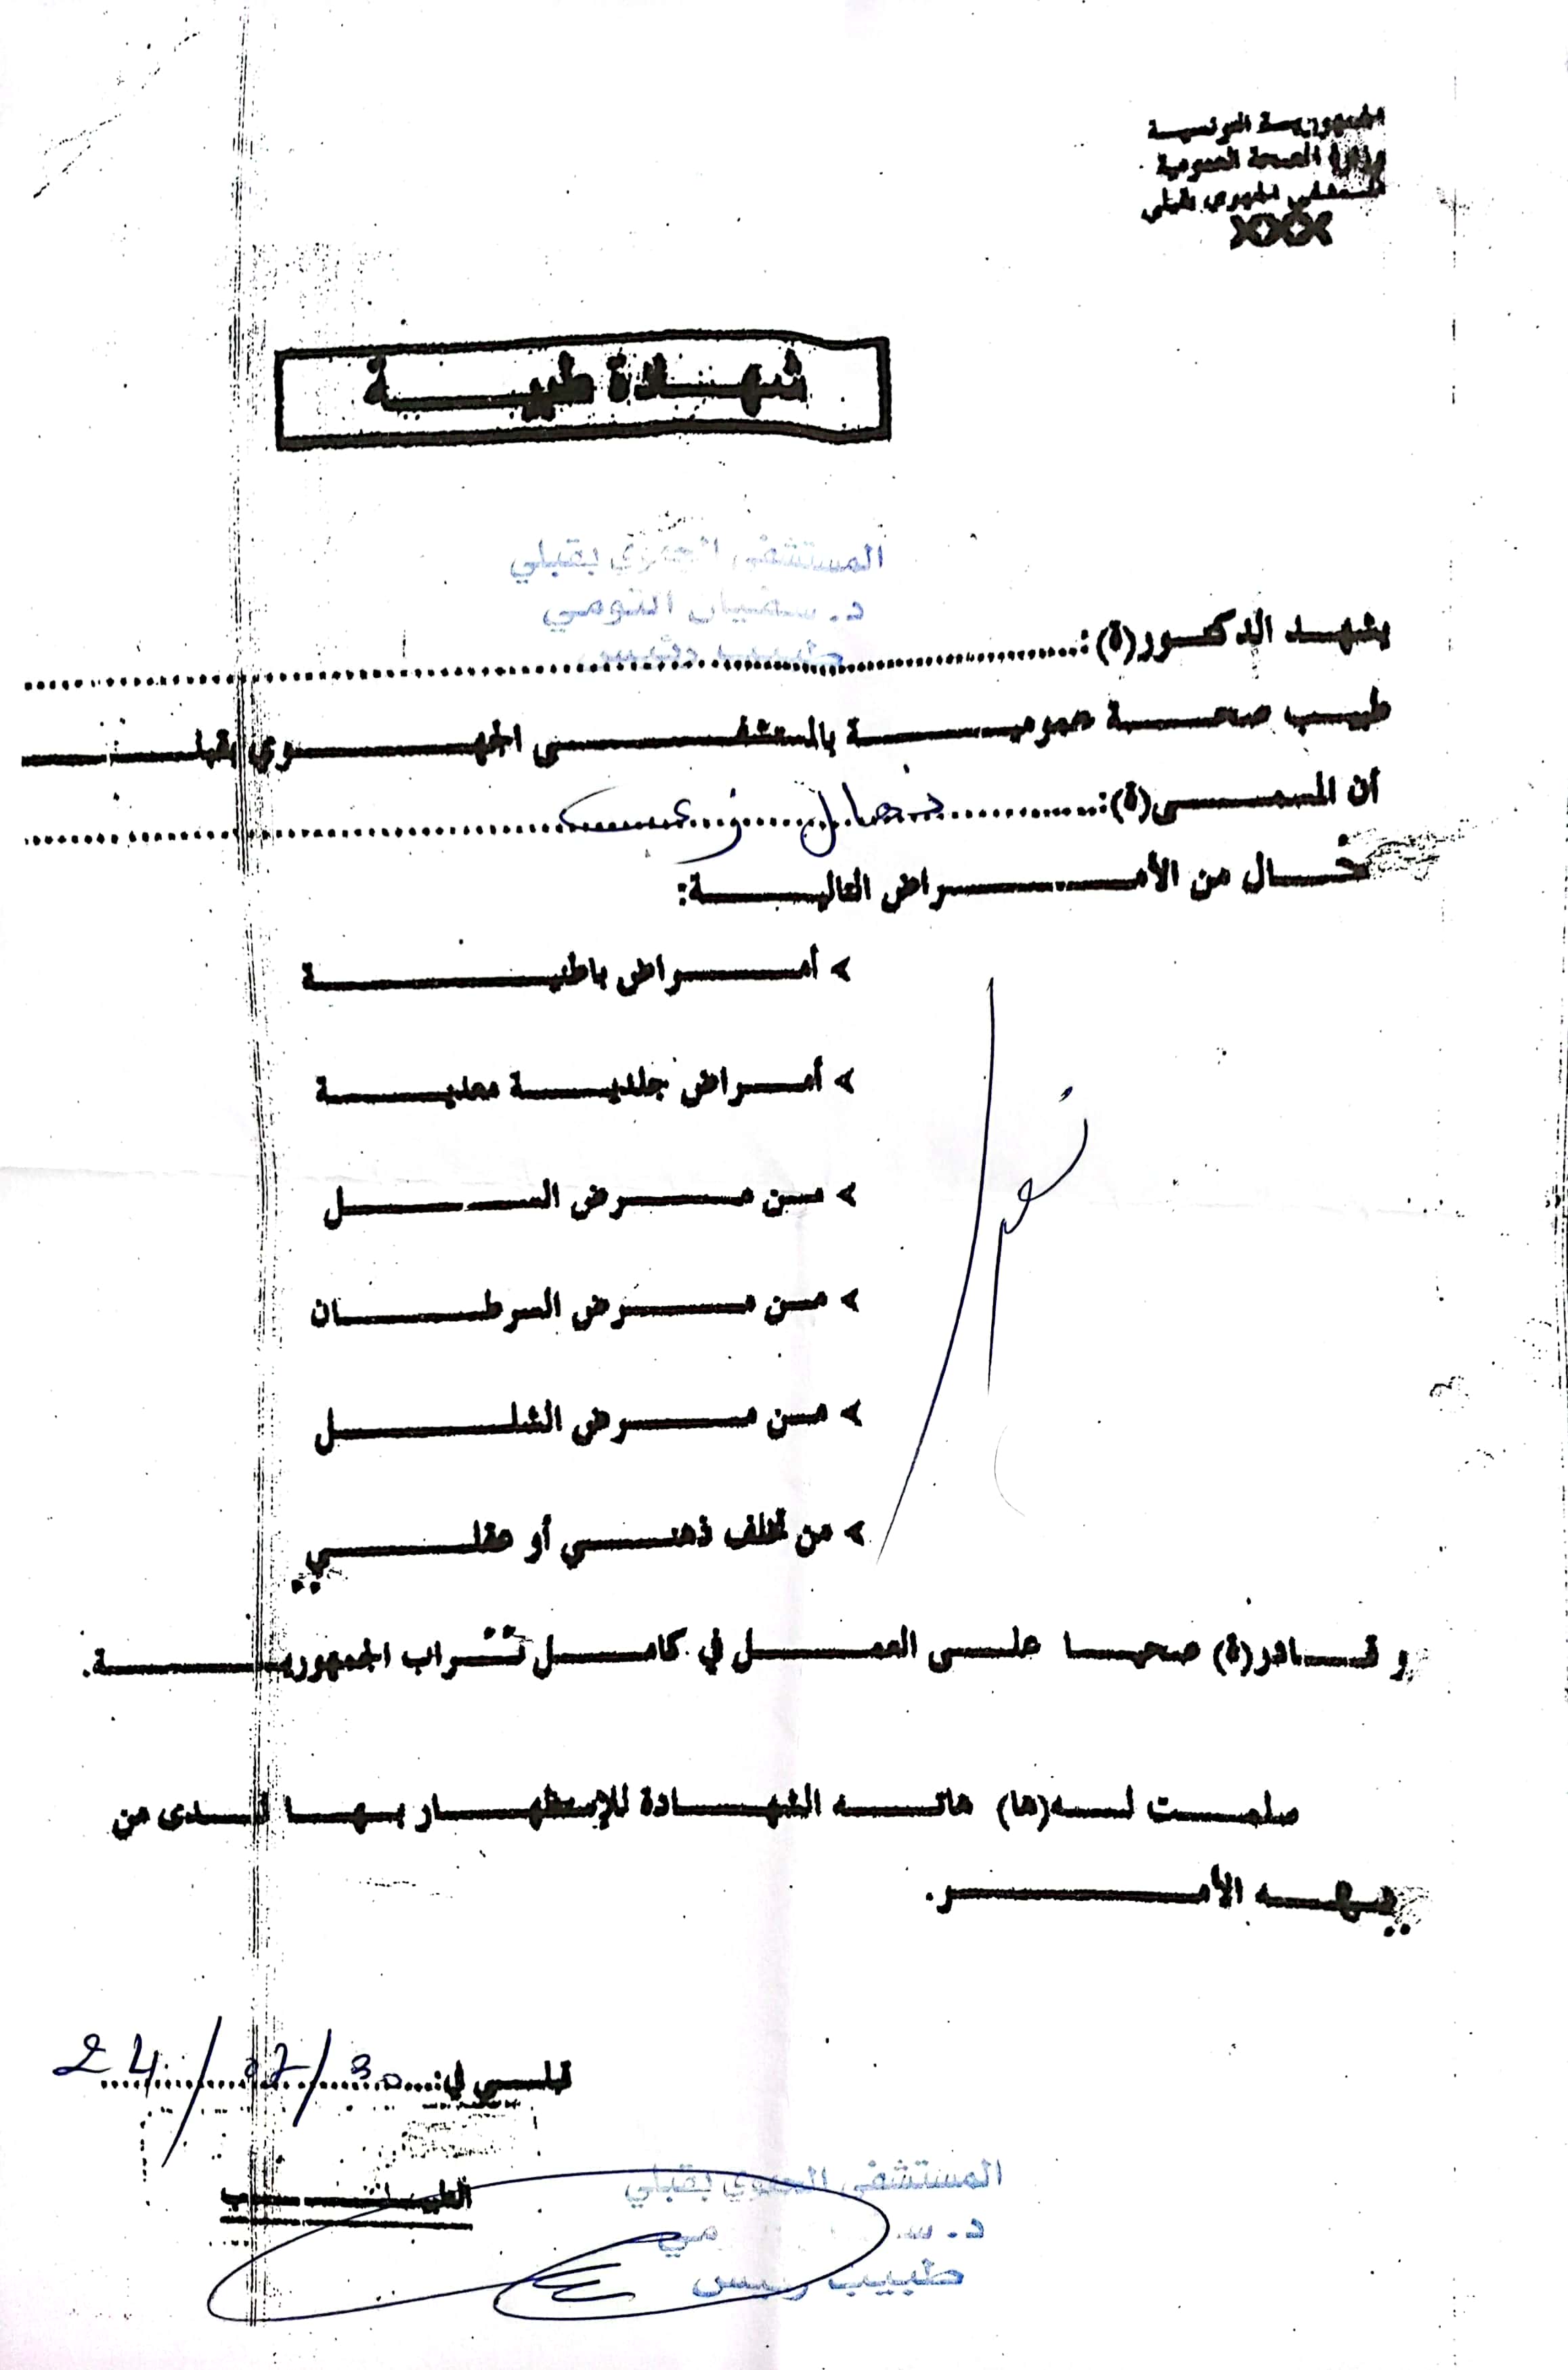 الجمهورية التونسية
وزارة الصحة العمومية
المستشفى الجهوي بقبلي
XXXX
شهادة طبية
المستشفى الجهوي بقبلي
د. سفيان التومي
يشهد الدكتور(ة):
طبيب صحة عمومية بالمستشفى الجهوي بقبلي
أن المسمى(ة):
خال من الأمراض التالية:
> أمراض باطنية
> أمراض جلدية معدية
> من مرض السل
> من مرض السرطان
> من مرض الشلل
> من تخلف ذهني أو عقلي
نعم
و قادر(ة) صحيا على العمل في كامل تراب الجمهورية.
سلمت له(ها) هاته الشهادة للإستظهار بها لدى من
يهمه الأمر.
قبلي في: 30/07/24
الطبيب
المستشفى الجهوي بقبلي
د. س مي
طبيب رئيس